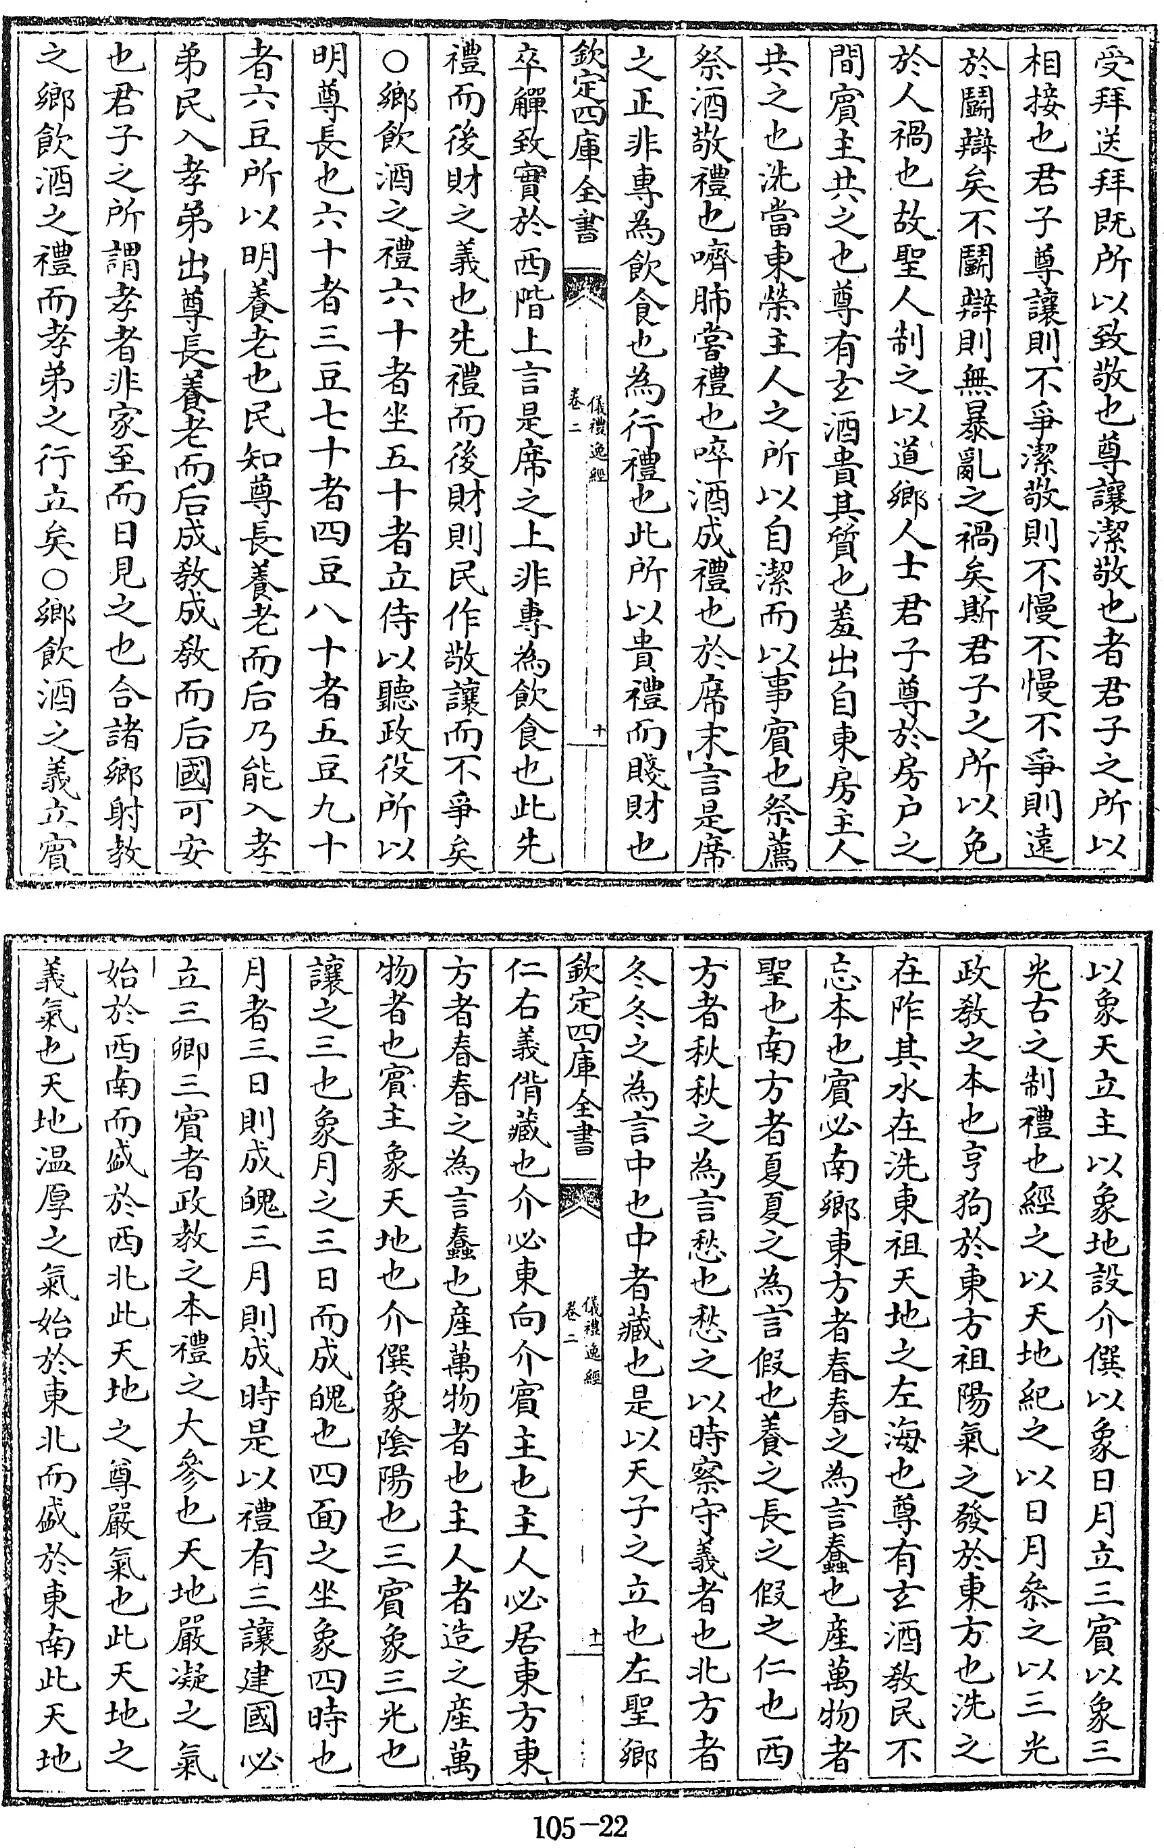 受拜送拜既所以致敬也尊讓潔敬也者君子之所以
相接也君子尊讓則不爭潔敬則不慢不慢不爭則遠
於鬭辯矣不鬭辯則無暴亂之禍矣斯君子之所以免
於人禍也故聖人制之以道鄉人士君子尊於房户之
間賓主共之也尊有玄酒貴其質也羞出自東房主人
共之也洗當東榮主人之所以自潔而以事賓也祭薦
祭酒敬禮也嚌肺嘗禮也啐酒成禮也於席末言是席
之正非專為飲食也為行禮也此所以貴禮而賤財也
欽定四庫全書
儀禮逸經
卷二
十
卒觶致實於西階上言是席之上非專為飲食也此先
禮而後財之義也先禮而後財則民作敬讓而不爭矣
○鄉飲酒之禮六十者坐五十者立侍以聽政役所以
明尊長也六十者三豆七十者四豆八十者五豆九十
者六豆所以明養老也民知尊長養老而后乃能入孝
弟民入孝弟出尊長養老而后成敎成敎而后國可安
也君子之所謂孝者非家至而日見之也合諸鄉射教
之鄉飲酒之禮而孝弟之行立矣○鄉飲酒之義立賓
以象天立主以象地設介僎以象日月立三賓以象三
光古之制禮也經之以天地紀之以日月叅之以三光
政敎之本也亨狗於東方祖陽氣之發於東方也洗之
在阼其水在洗東祖天地之左海也尊有玄酒敎民不
忘本也賓必南鄉東方者春春之為言蠢也產萬物者
聖也南方者夏夏之為言假也養之長之假之仁也西
方者秋秋之為言愁也愁之以時察守義者也北方者
冬冬之為言中也中者藏也是以天子之立也左聖鄉
欽定四庫全書
儀禮逸經
卷二
十一
仁右義偝藏也介必東向介賓主也主人必居東方東
方者春春之為言蠢也產萬物者也主人者造之產萬
物者也賓主象天地也介僎象陰陽也三賓象三光也
讓之三也象月之三日而成魄也四面之坐象四時也
月者三日則成魄三月則成時是以禮有三讓建國必
立三卿三賓者政教之本禮之大參也天地嚴凝之氣
始於西南而盛於西北此天地之尊嚴氣也此天地之
義氣也天地温厚之氣始於東北而盛於東南此天地
105-22